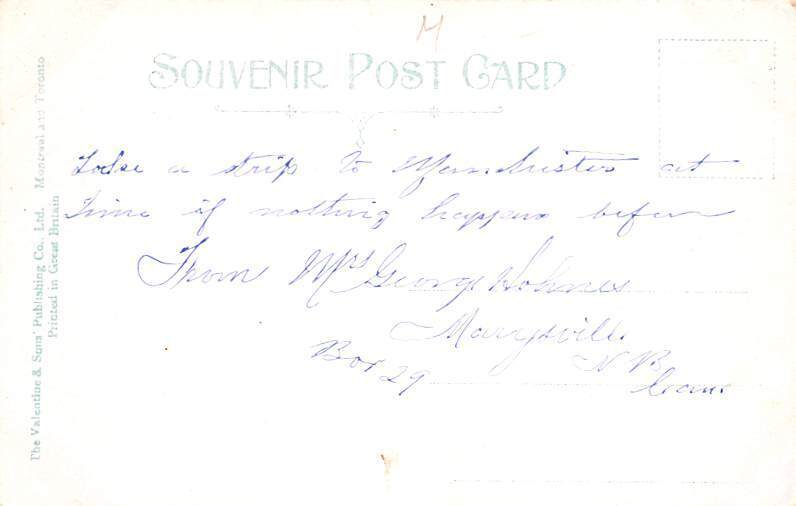 M
SOUVENIR POST CARD
a trip to Manchester at
time if nothing happens before
From Mrs George Holmes
Marysville
Box 29
N B
The Valentine & Sons' Publishing Co., Ltd. Montreal and Toronto
Printed in Great Britain